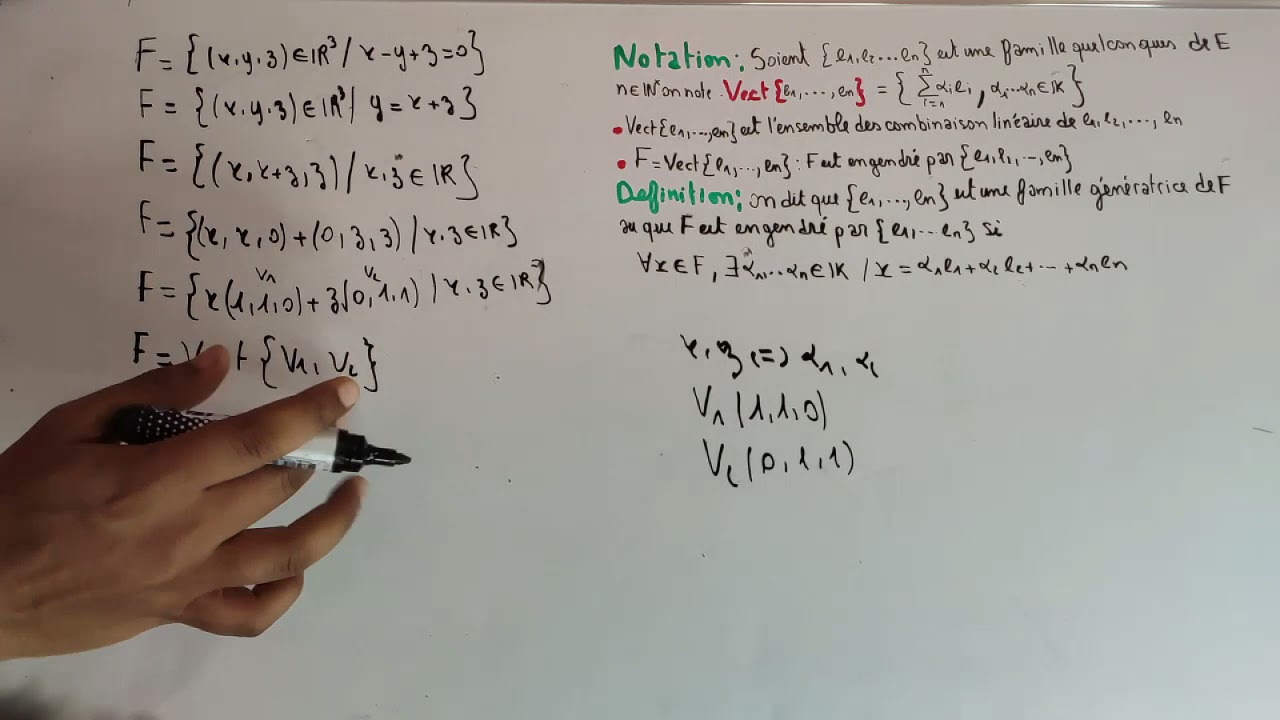 F = {(x,y,z) ∈ IR³ / x-y+z=0}
F = {(x,y,z) ∈ IR³ / y = x+z}
F = {(x, x+z, z) / x,z ∈ IR}
F = {(x, x, 0) + (0, z, z) / x,z ∈ IR}
V1 V2
F = {x(1,1,0) + z(0,1,1) / x,z ∈ IR}
F = V t {V1, V2}
Notation: Soient {e1,e2...en} est une famille quelconques de E
n∈IN* on note Vect{e1,...,en} = { Σ αi ei , α1...αn ∈ IK }
• Vect{e1,...,en} est l'ensemble des combinaison linéaire de e1, e2, ..., en
• F = Vect{e1,...,en} : F est engendré par {e1,e2,...,en}
Definition: on dit que {e1,...,en} est une famille génératrice de F
ou que F est engendré par {e1,...en} si
∀x∈F, ∃α1...αn ∈ IK / x = α1e1+α2e2+...+αnen
x, z (=) α1, α2
V1 (1,1,0)
V2 (0,1,1)